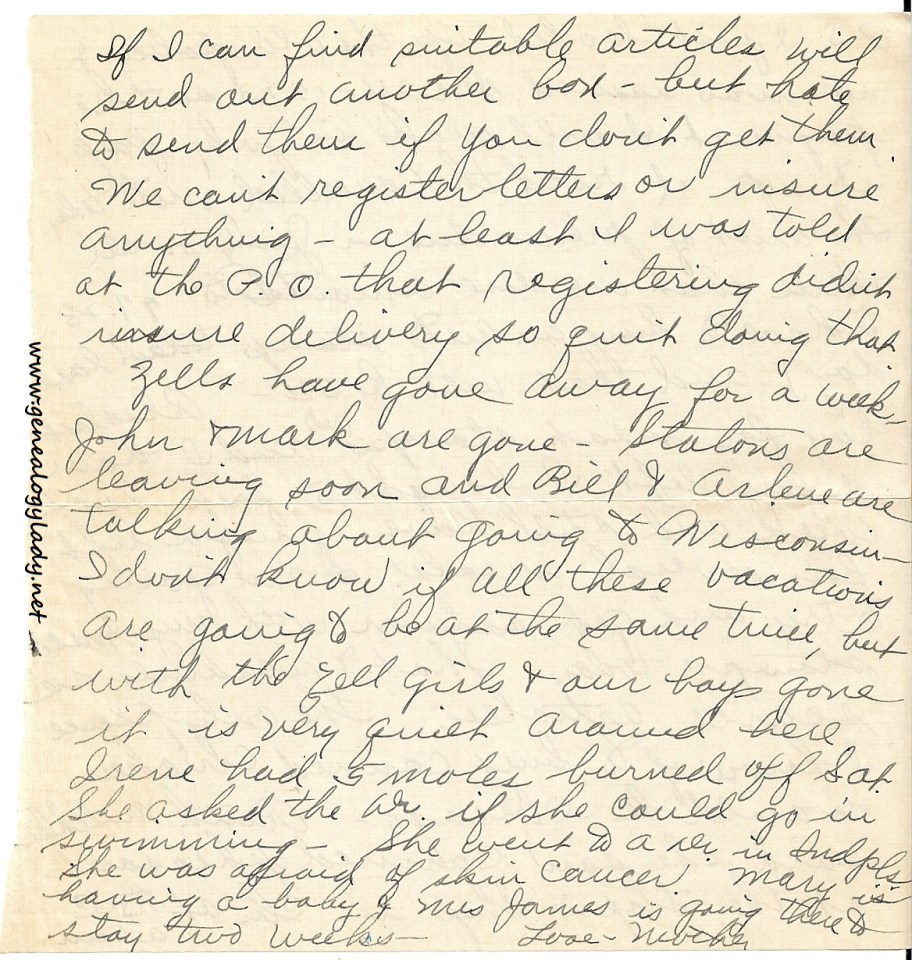 If I can find suitable articles will
send out another box - but hate
to send them if you don't get them
We can't register letters or insure
anything - at least I was told
at the P.O. that registering didn't
insure delivery so quit doing that
Zells have gone away for a week -
John & Mark are gone - Statons are
leaving soon and Bill & Arlene are
talking about going to Wisconsin -
I don't know if all these vacations
are going to be at the same time, but
with the Zell girls & our boys gone
it is very quiet around here
Irene had 5 moles burned off Sat
She asked the Dr. if she could go in
swimming - She went to a Dr. in Indpls
She was afraid of skin cancer. Mary is
having a baby & Mrs James is going there to
stay two weeks -      Love - Mother
www.genealogylady.net